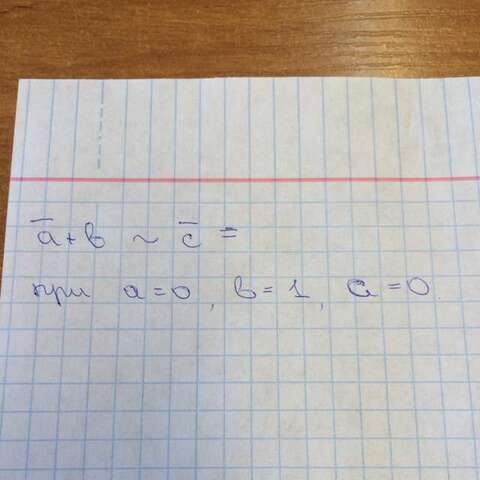 a̅ + в ~ c̅ =
при a = 0, в = 1, c = 0.